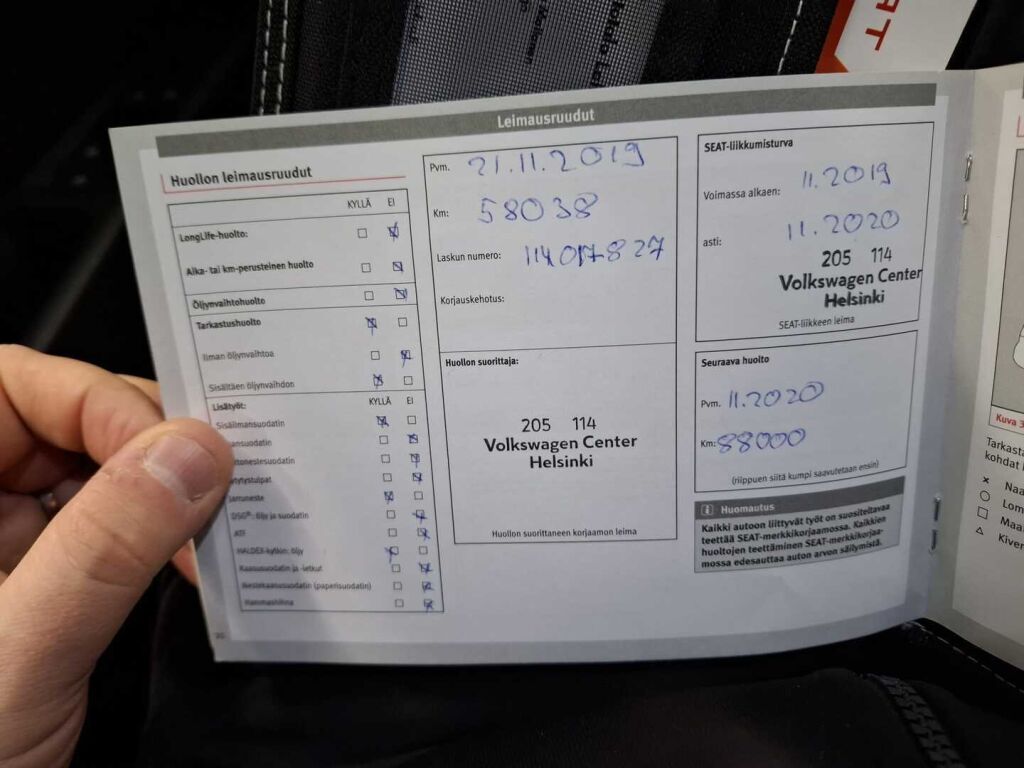 RT
Leimausruudut
Huollon leimausruudut
KYLLÄ EI
LongLife-huolto:
Aika- tai km-perusteinen huolto
Öljynvaihtohuolto
Tarkastushuolto
Ilman öljynvaihtoa
Sisältäen öljynvaihdon
Lisätyöt: KYLLÄ EI
Sisäilmansuodatin
ansuodatin
rtonestesuodatin
ytystulpat
Jarruneste
DSG®: öljy ja suodatin
ATF
HALDEX-kytkin: öljy
Kaasusuodatin ja -letkut
Nestekaasusuodatin (paperisuodatin)
Hammashihna
Pvm. 21.11.2019
Km: 58038
Laskun numero: 114017827
Korjauskehotus:
Huollon suorittaja:
205 114
Volkswagen Center
Helsinki
Huollon suorittaneen korjaamon leima
SEAT-liikkumisturva
Voimassa alkaen: 11.2019
asti: 11.2020
205 114
Volkswagen Center
Helsinki
SEAT-liikkeen leima
Seuraava huolto
Pvm. 11.2020
Km: 88000
(riippuen siitä kumpi saavutetaan ensin)
i Huomautus
Kaikki autoon liittyvät työt on suositeltavaa
teettää SEAT-merkkikorjaamossa. Kaikkien
huoltojen teettäminen SEAT-merkkikorjaa-
mossa edesauttaa auton arvon säilymistä.
Kuva 3
Tarkasta
kohdat
Naa
Lom
Maa
Kiver